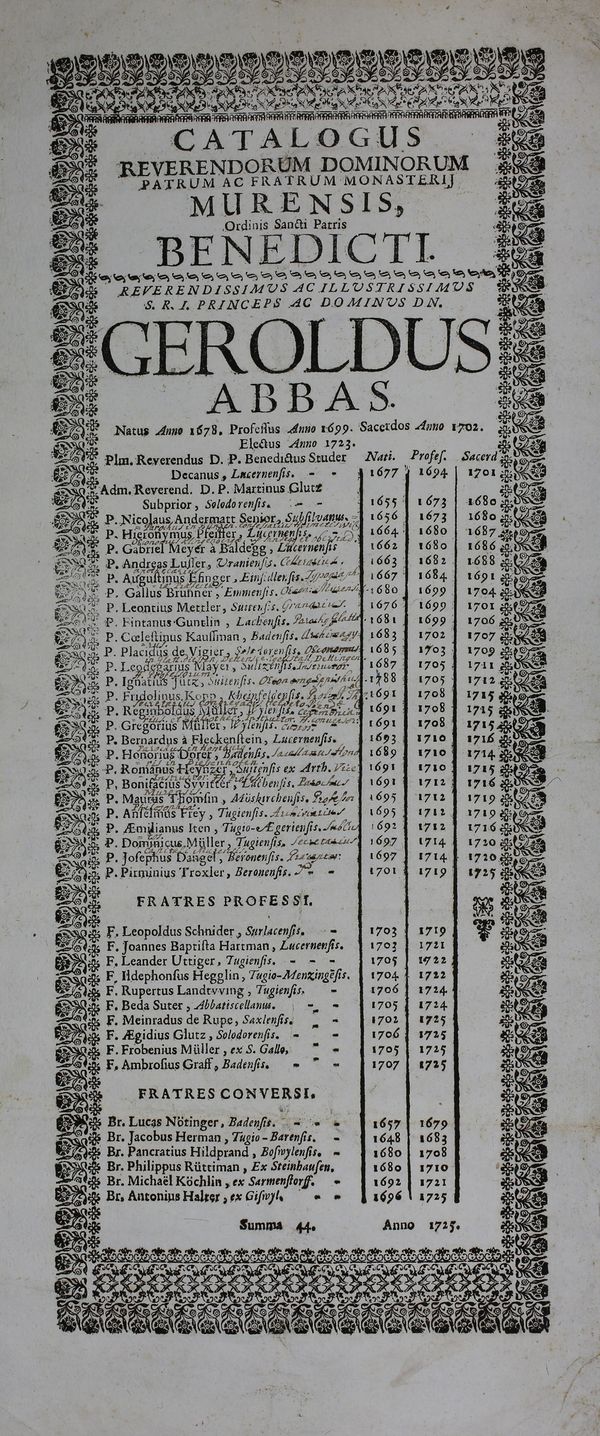 CATALOGUS
REVERENDORUM DOMINORUM
PATRUM AC FRATRUM MONASTERIJ
MURENSIS,
Ordinis Sancti Patris
BENEDICTI.
REVERENDISSIMVS AC ILLVSTRISSIMVS
S. R. I. PRINCEPS AC DOMINVS DN.
GEROLDUS
ABBAS.
Natus Anno 1678. Professus Anno 1699. Sacerdos Anno 1702.
Electus Anno 1723.
Plm. Reverendus D. P. Benedictus Studer Nati. Profes. Sacerd
Decanus, Lucernensis. - - 1677 1694 1701
Adm. Reverend. D. P. Martinus Glutz
Subprior, Solodorensis. - 1655 1673 1680
P. Nicolaus Andermatt Senior, Subsilvanus. - 1656 1673 1680
P. Hieronymus Pfeiffer, Lucernensis. - 1664 1680 1687
P. Gabriel Meyer à Baldegg, Lucernensis 1662 1680 1686
P. Andreas Lusser, Uraniensis. 1663 1682 1688
P. Augustinus Efinger, Einsidlensis. 1667 1684 1691
P. Gallus Brunner, Emmensis. 1680 1699 1704
P. Leontius Mettler, Suitensis. 1676 1699 1701
P. Fintanus Guntlin, Lachensis. 1681 1699 1706
P. Cœlestinus Kauffman, Badensis. 1683 1702 1707
P. Placidus de Vigier, Solodorensis. 1685 1703 1709
P. Leodegarius Mayer, Sultzensis. 1687 1705 1711
P. Ignatius Jütz, Suitensis. 1788 1705 1712
P. Fridolinus Kopp, Rheinfeldensis. 1691 1708 1715
P. Reginboldus Müller, Wylensis. 1691 1708 1715
P. Gregorius Müller, Wylensis. 1691 1708 1715
P. Bernardus à Fleckenstein, Lucernensis. 1693 1710 1716
P. Honorius Dorer, Badensis. 1689 1710 1714
P. Romanus Heynzer, Suitensis ex Arth. 1691 1710 1715
P. Bonifacius Svvitter, Lachensis. 1691 1712 1716
P. Maurus Thomsin, Möskirchensis. 1695 1712 1719
P. Anselmus Frey, Tugiensis. 1695 1712 1719
P. Æmilianus Iten, Tugio-Ægeriensis. 1692 1712 1716
P. Dominicus Müller, Tugiensis. Secretarius 1697 1714 1720
P. Josephus Dangel, Beronensis. 1697 1714 1720
P. Pirminius Troxler, Beronensis. - 1701 1719 1725
FRATRES PROFESSI.
F. Leopoldus Schnider, Surlacensis. - 1703 1719
F. Joannes Baptista Hartman, Lucernensis. 1703 1721
F. Leander Uttiger, Tugiensis. - - - 1705 1722
F. Ildephonsus Hegglin, Tugio-Menzingēsis. 1704 1722
F. Rupertus Landtvving, Tugiensis. - 1706 1724
F. Beda Suter, Abbatiscellanus. - - 1705 1724
F. Meinradus de Rupe, Saxlensis. - - 1702 1725
F. Ægidius Glutz, Solodorensis. - - 1706 1725
F. Frobenius Müller, ex S. Gallo. - - 1705 1725
F. Ambrosius Graff, Badensis. - - 1707 1725
FRATRES CONVERSI.
Br. Lucas Nötinger, Badensis. - - - 1657 1679
Br. Jacobus Herman, Tugio-Barensis. - 1648 1683
Br. Pancratius Hildprand, Boswylensis. - 1680 1708
Br. Philippus Rüttiman, Ex Steinhausen. 1680 1710
Br. Michaël Köchlin, ex Sarmenstorff. - 1692 1721
Br. Antonius Halter, ex Giswyl. - - 1696 1725
Summa 44. Anno 1725.